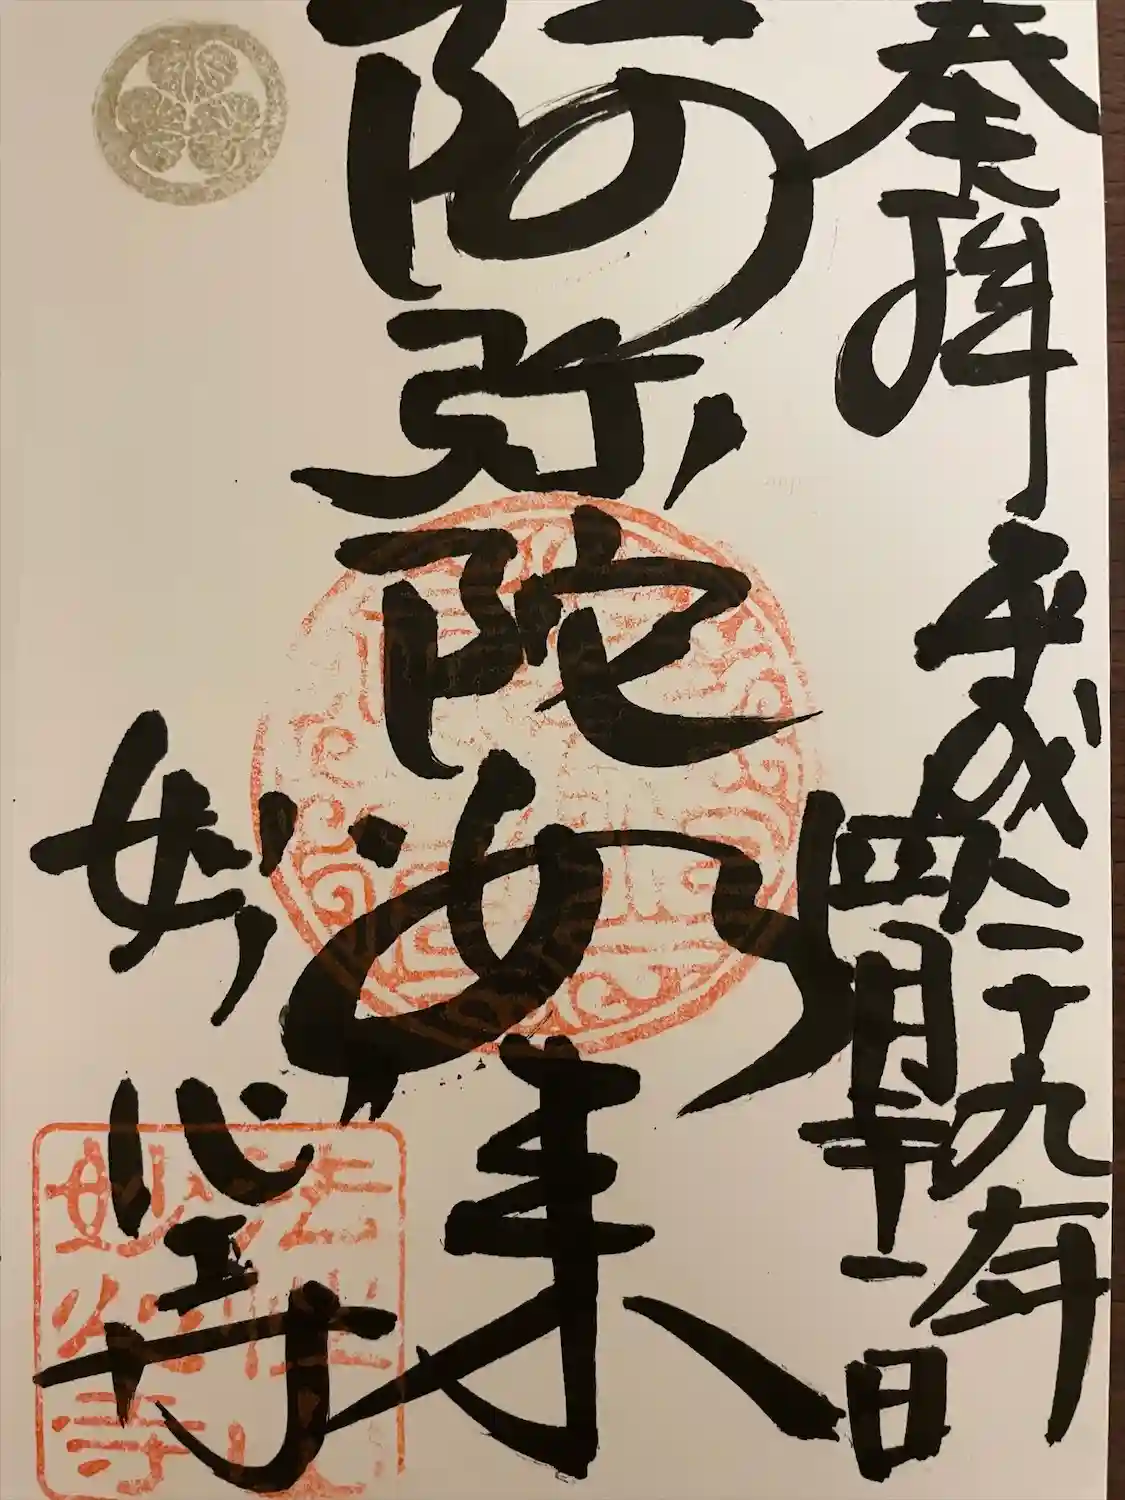 奉拝 平成二十九年
四月二十一日
阿弥陀如来
妙心寺
法性山
妙心寺